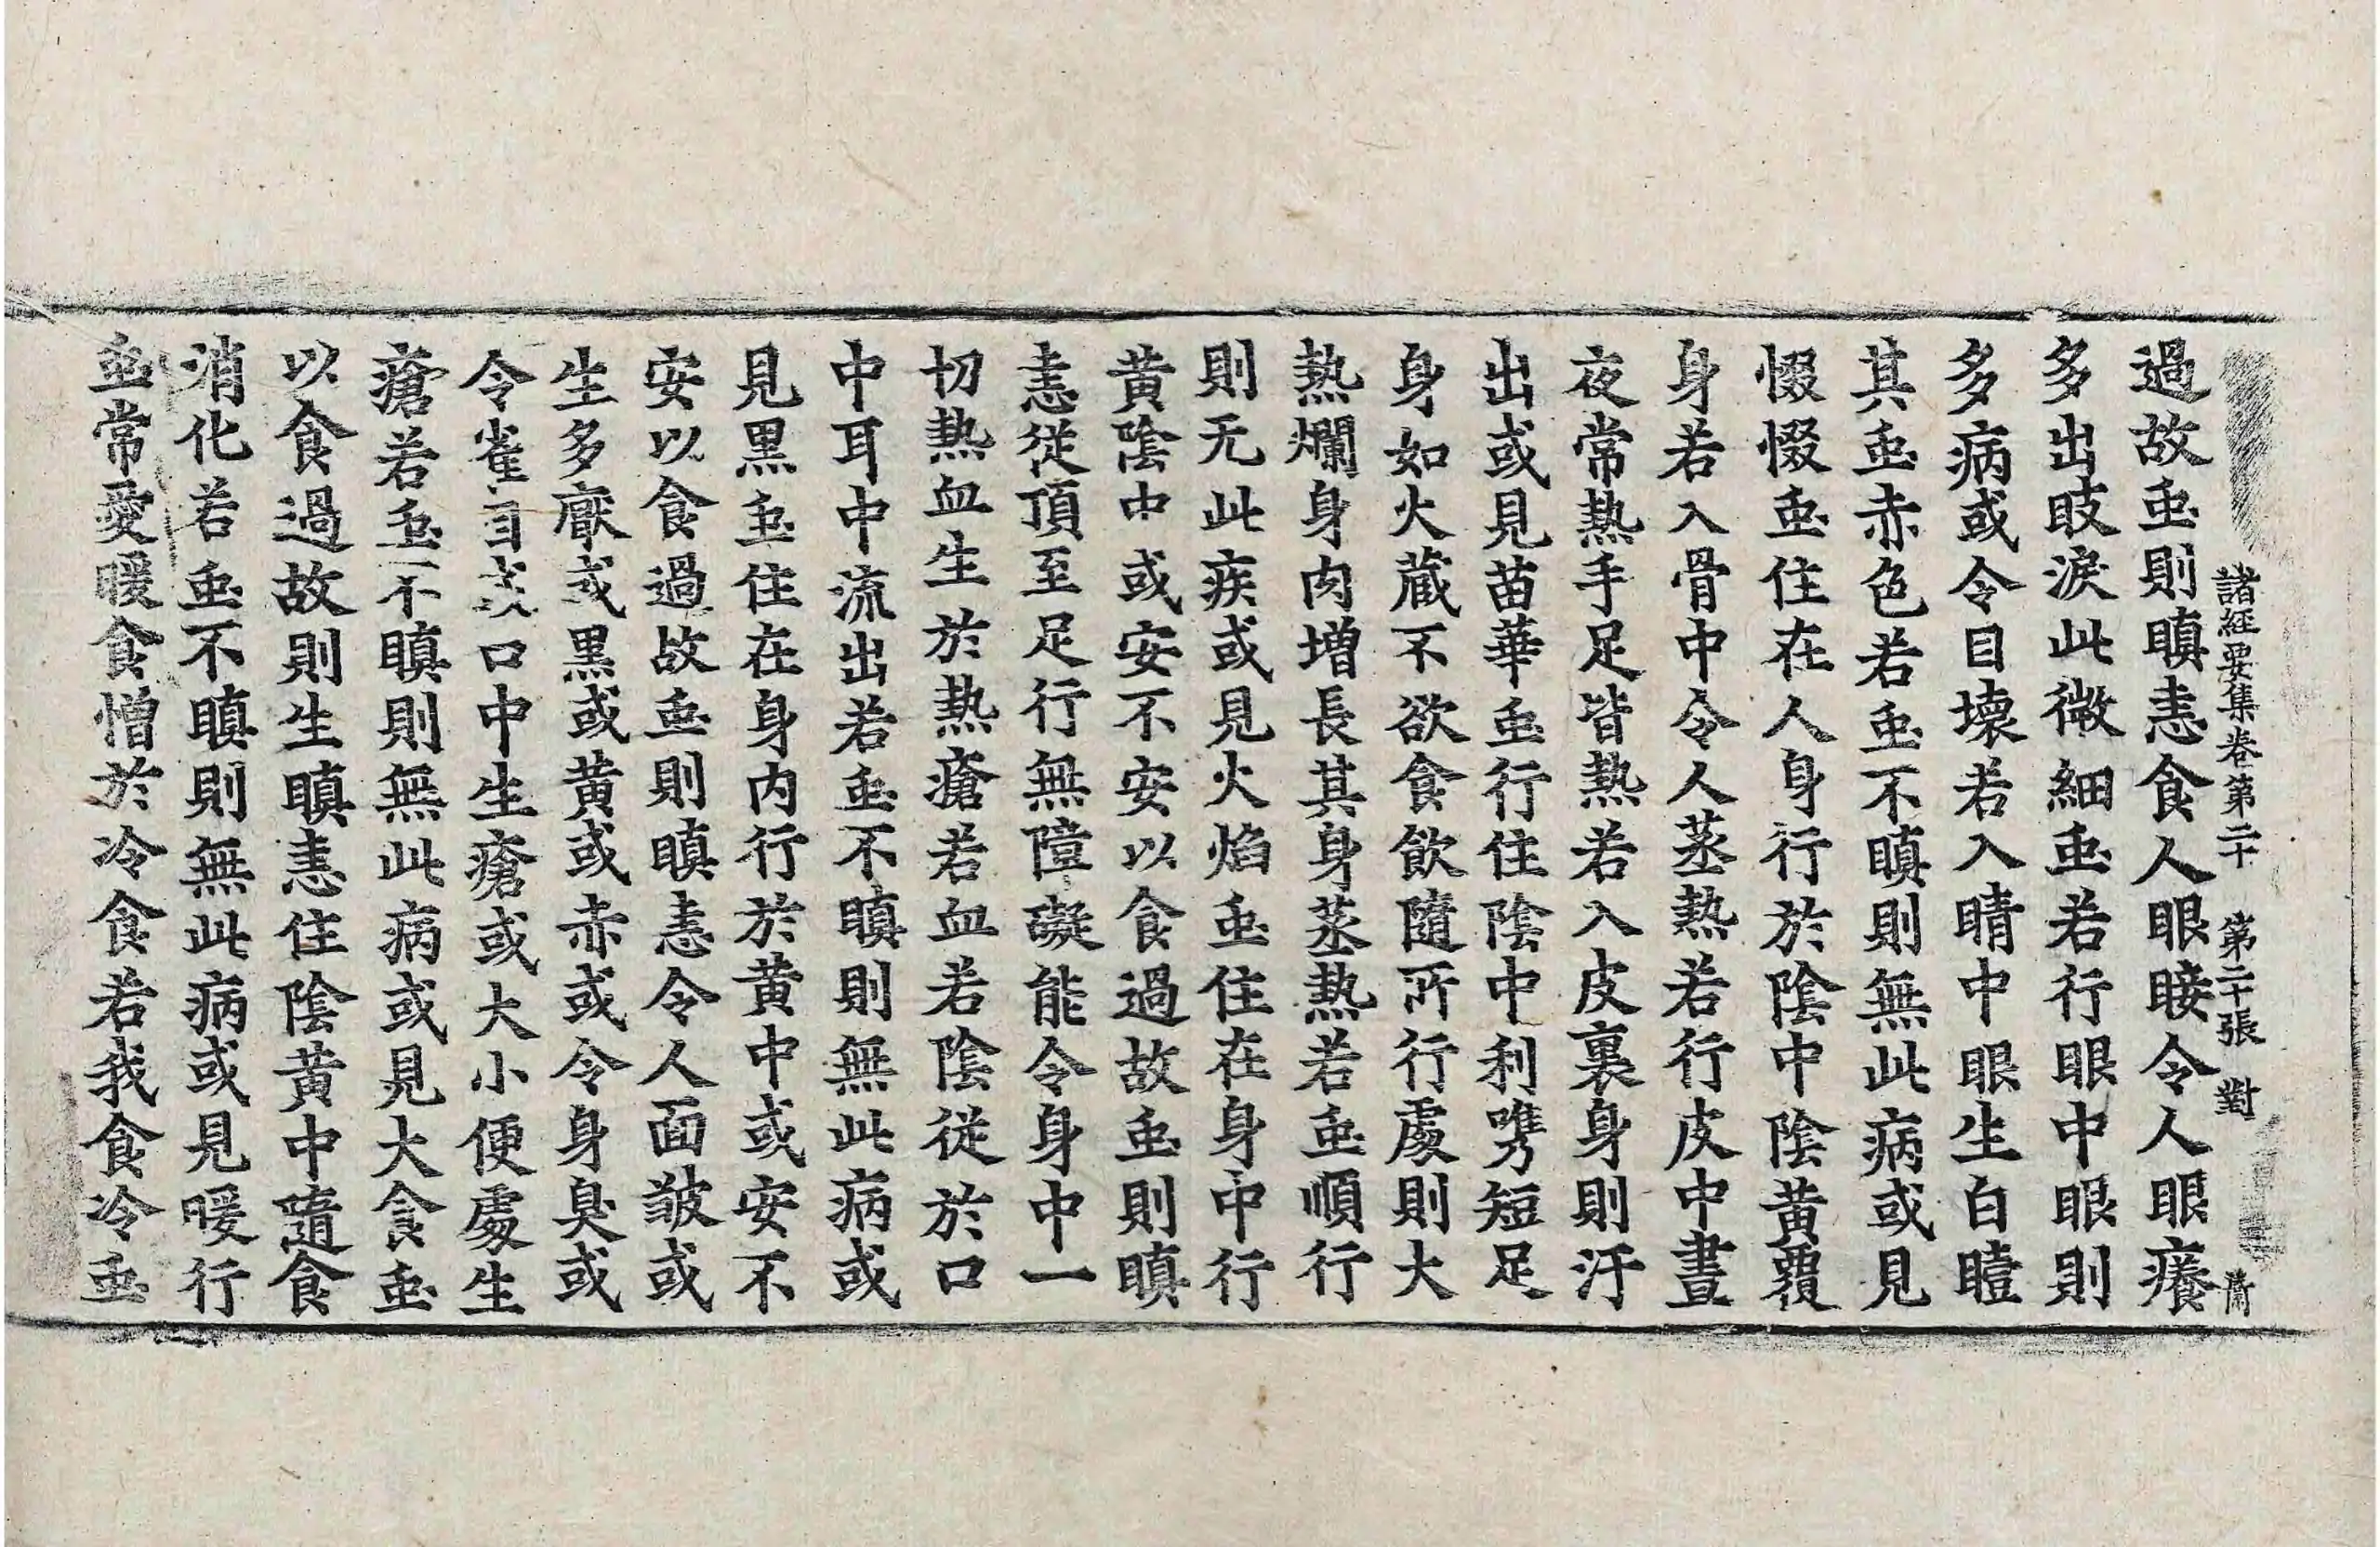 諸經要集卷第二十　第二十張　對
過故䖝則瞋恚食人眼睫令人眼癢
多出眵淚此微細䖝若行眼中眼則
多病或令目壞若入睛中眼生白瞖
其䖝赤色若䖝不瞋則無此病或見
惙惙䖝住在人身行於陰中陰黃覆
身若入骨中令人蒸熱若行皮中晝
夜常熱手足皆熱若入皮裏身則汗
出或見苗華䖝行住陰中利㭰短足
身如火蔵不欲食飲隨所行處則大
熱爛身肉增長其身蒸熱若䖝順行
則无此疾或見火焰䖝住在身中行
黃陰中或安不安以食過故䖝則瞋
恚從頂至足行無障礙能令身中一
切熱血生於熱瘡若血若陰從於口
中耳中流出若䖝不瞋則無此病或
見黑䖝住在身內行於黃中或安不
安以食過故䖝則瞋恚令人面皺或
生多黶或黑或黃或赤或令身臭或
令雀目或口中生瘡或大小便處生
瘡若䖝不瞋則無此病或見大食䖝
以食過故則生瞋恚住陰黃中隨食
消化若䖝不瞋則無此病或見暖行
䖝常愛暖食憎於冷食若我食冷䖝